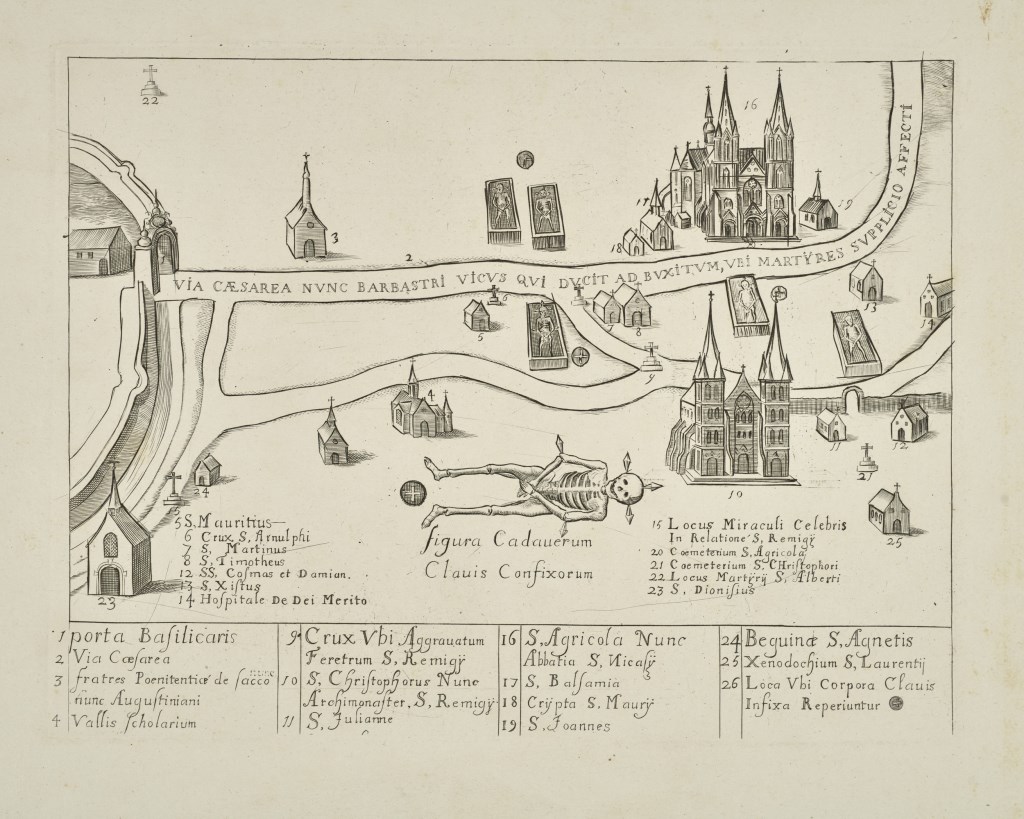 22
16
VIA CÆSAREA NVNC BARBASTRI VICVS QVI DVCIT AD BVXITVM, VBI MARTYRES SVPPLICIO AFFECTI
3
2
17
18
19
5
6
7
8
9
13
14
4
10
11
12
21
24
15
25
23
5 S. Mauritius
6 Crux S, Arnulphi
7 S, Martinus
8 S, Timotheus
12 SS, Cosmas et Damian.
13 S, Xistus
14 Hospitale De Dei Merito
figura Cadauerum
Clauis Confixorum
15 Locus Miraculi Celebris
In Relatione S, Remigÿ
20 Coemeterium S, Agricola
21 Coemeterium S. CHristophori
22 Locus Martÿrÿ S, Alberti
23 S, Dionisius
1 porta Basilicaris
2 Via Cæsarea
3 fratres Poenitentiæ de sacco nunc
nunc Augustiniani
4 Vallis scholarium
9 Crux Vbi Aggrauatum
Feretrum S, Remigÿ
10 S, Christophorus Nunc
Archimonaster, S, Remigÿ
11 S, Julianne
16 S, Agricola Nunc
Abbatia S, Nicasÿ
17 S, Balsamia
18 Crÿpta S. Maurÿ
19 S, Joannes
24 Beguinæ S, Agnetis
25 Xenodochium S, Laurentÿ
26 Loca Vbi Corpora Clauis
Infixa Reperiuntur